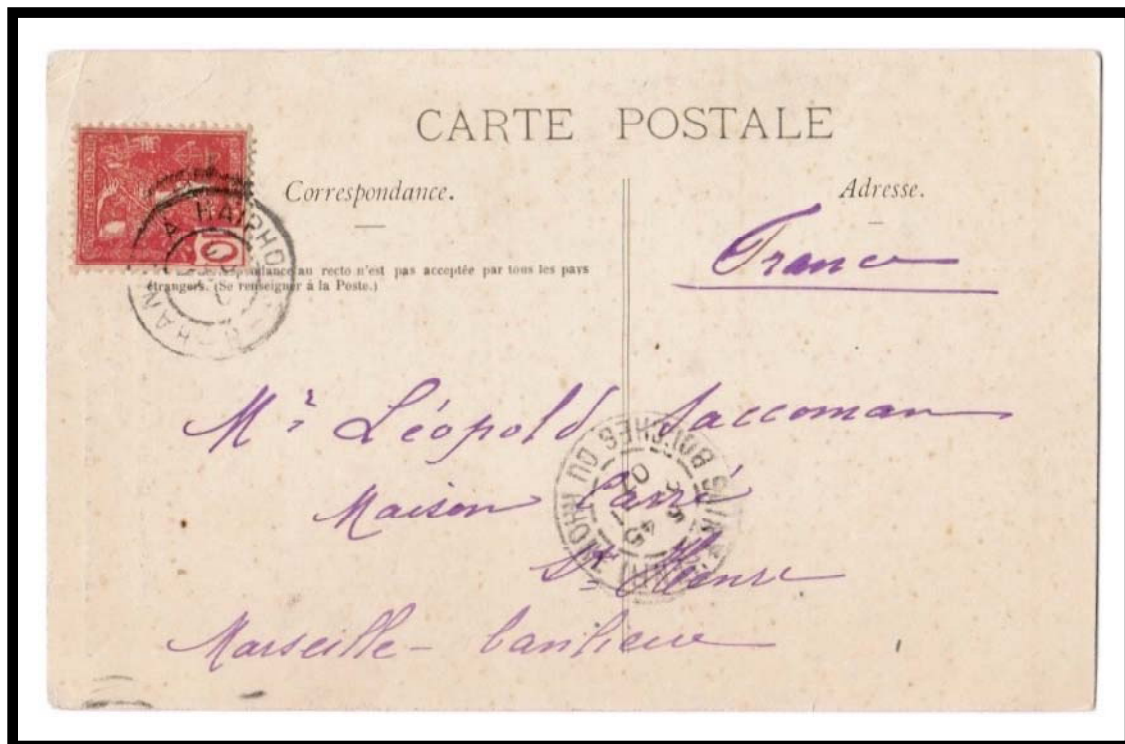 CARTE POSTALE
Correspondance.
Adresse.
La correspondance au recto n'est pas acceptée par tous les pays
étrangers. (Se renseigner à la Poste.)
France
Mr Léopold Saccoman
Maison Carré
St Henri
Marseille - banlieue
10
HAIPHONG
BOUCHES DU RHONE